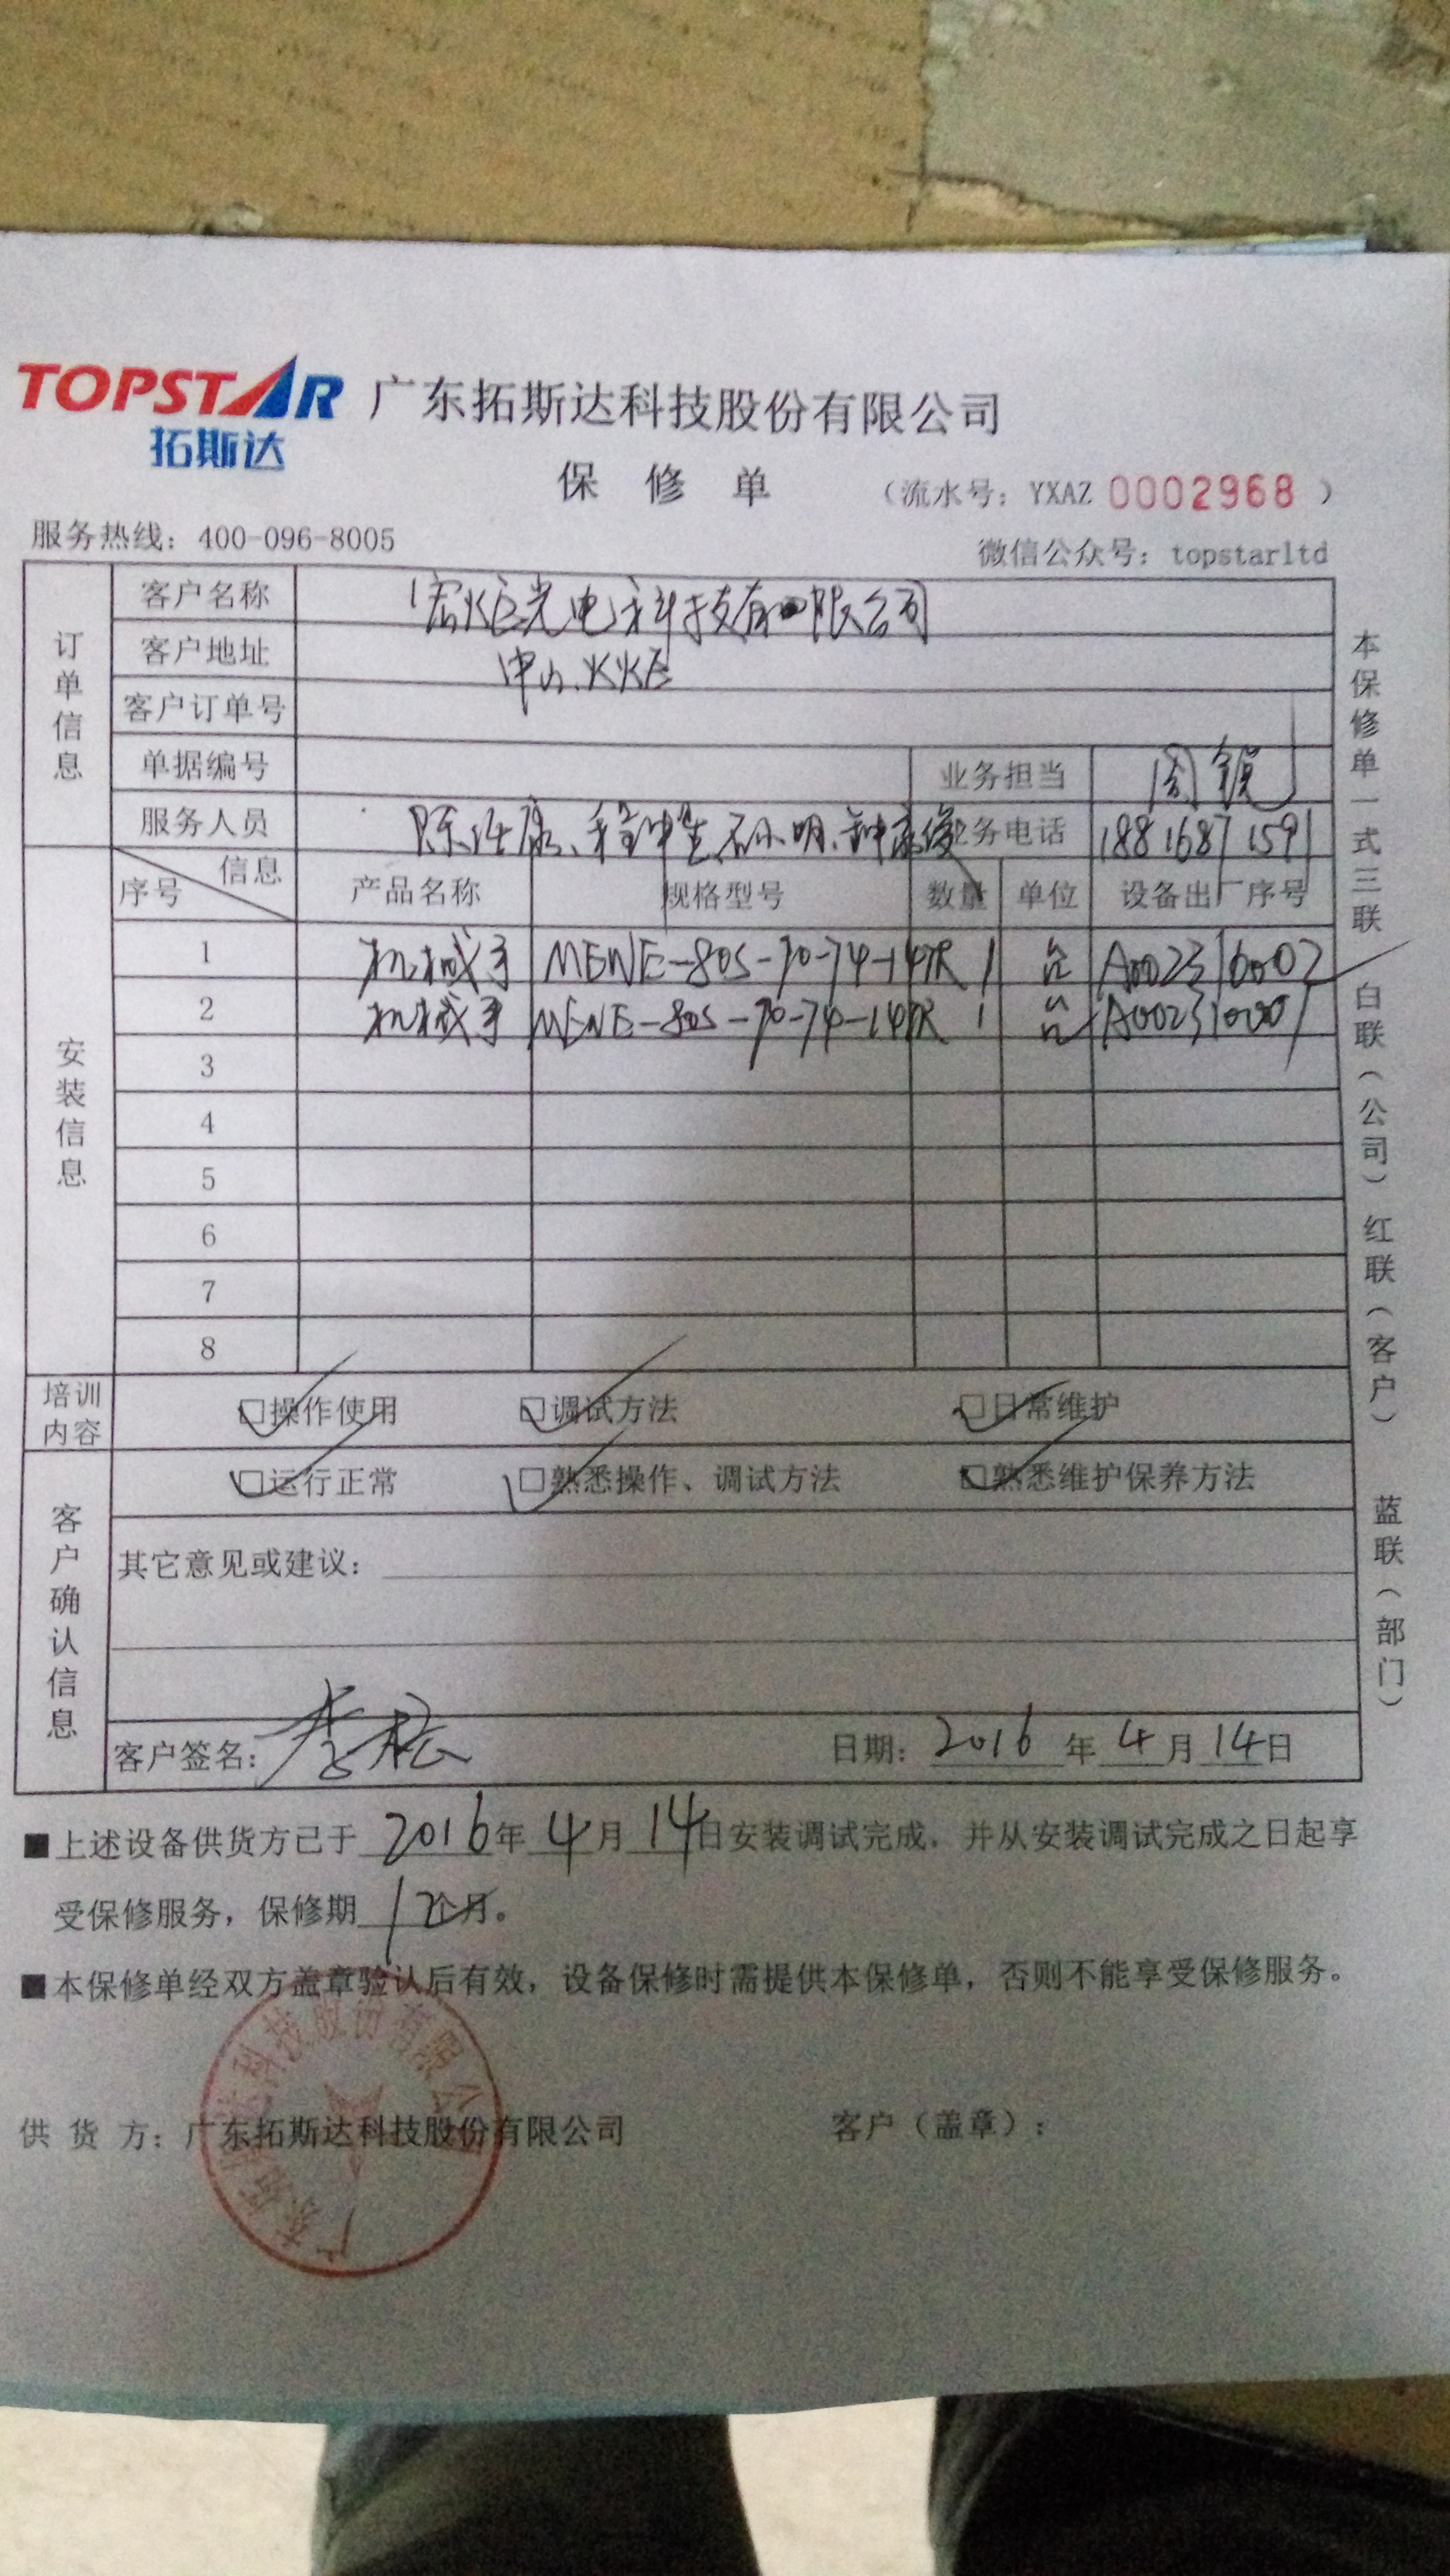 TOPSTAR 广东拓斯达科技股份有限公司
拓斯达
保 修 单 （流水号：YXAZ 0002968 ）
服务热线：400-096-8005 微信公众号：topstarltd
订单信息
客户名称 宏炬光电科技有限公司
客户地址 中山.火炬
客户订单号
单据编号 业务担当 周
服务人员 业务电话 18816871591
安装信息
序号 信息 产品名称 规格型号 数量 单位 设备出厂序号
1 机械手 MEWE-80S-70-74-14 1 台 A002316002
2 机械手 MEWE-80S-70-74-14 1 台
3
4
5
6
7
8
培训内容 □操作使用 □调试方法 □日常维护
客户确认信息
□运行正常 □熟悉操作、调试方法 □熟悉维护保养方法
其它意见或建议：
客户签名：李松 日期：2016年4月14日
■上述设备供货方已于2016年4月14日安装调试完成，并从安装调试完成之日起享
受保修服务，保修期12个月。
■本保修单经双方盖章验认后有效，设备保修时需提供本保修单，否则不能享受保修服务。
供 货 方：广东拓斯达科技股份有限公司 客户（盖章）：
广东拓斯达科技股份有限公司
本保修单一式三联 白联（公司）红联（客户） 蓝联（部门）